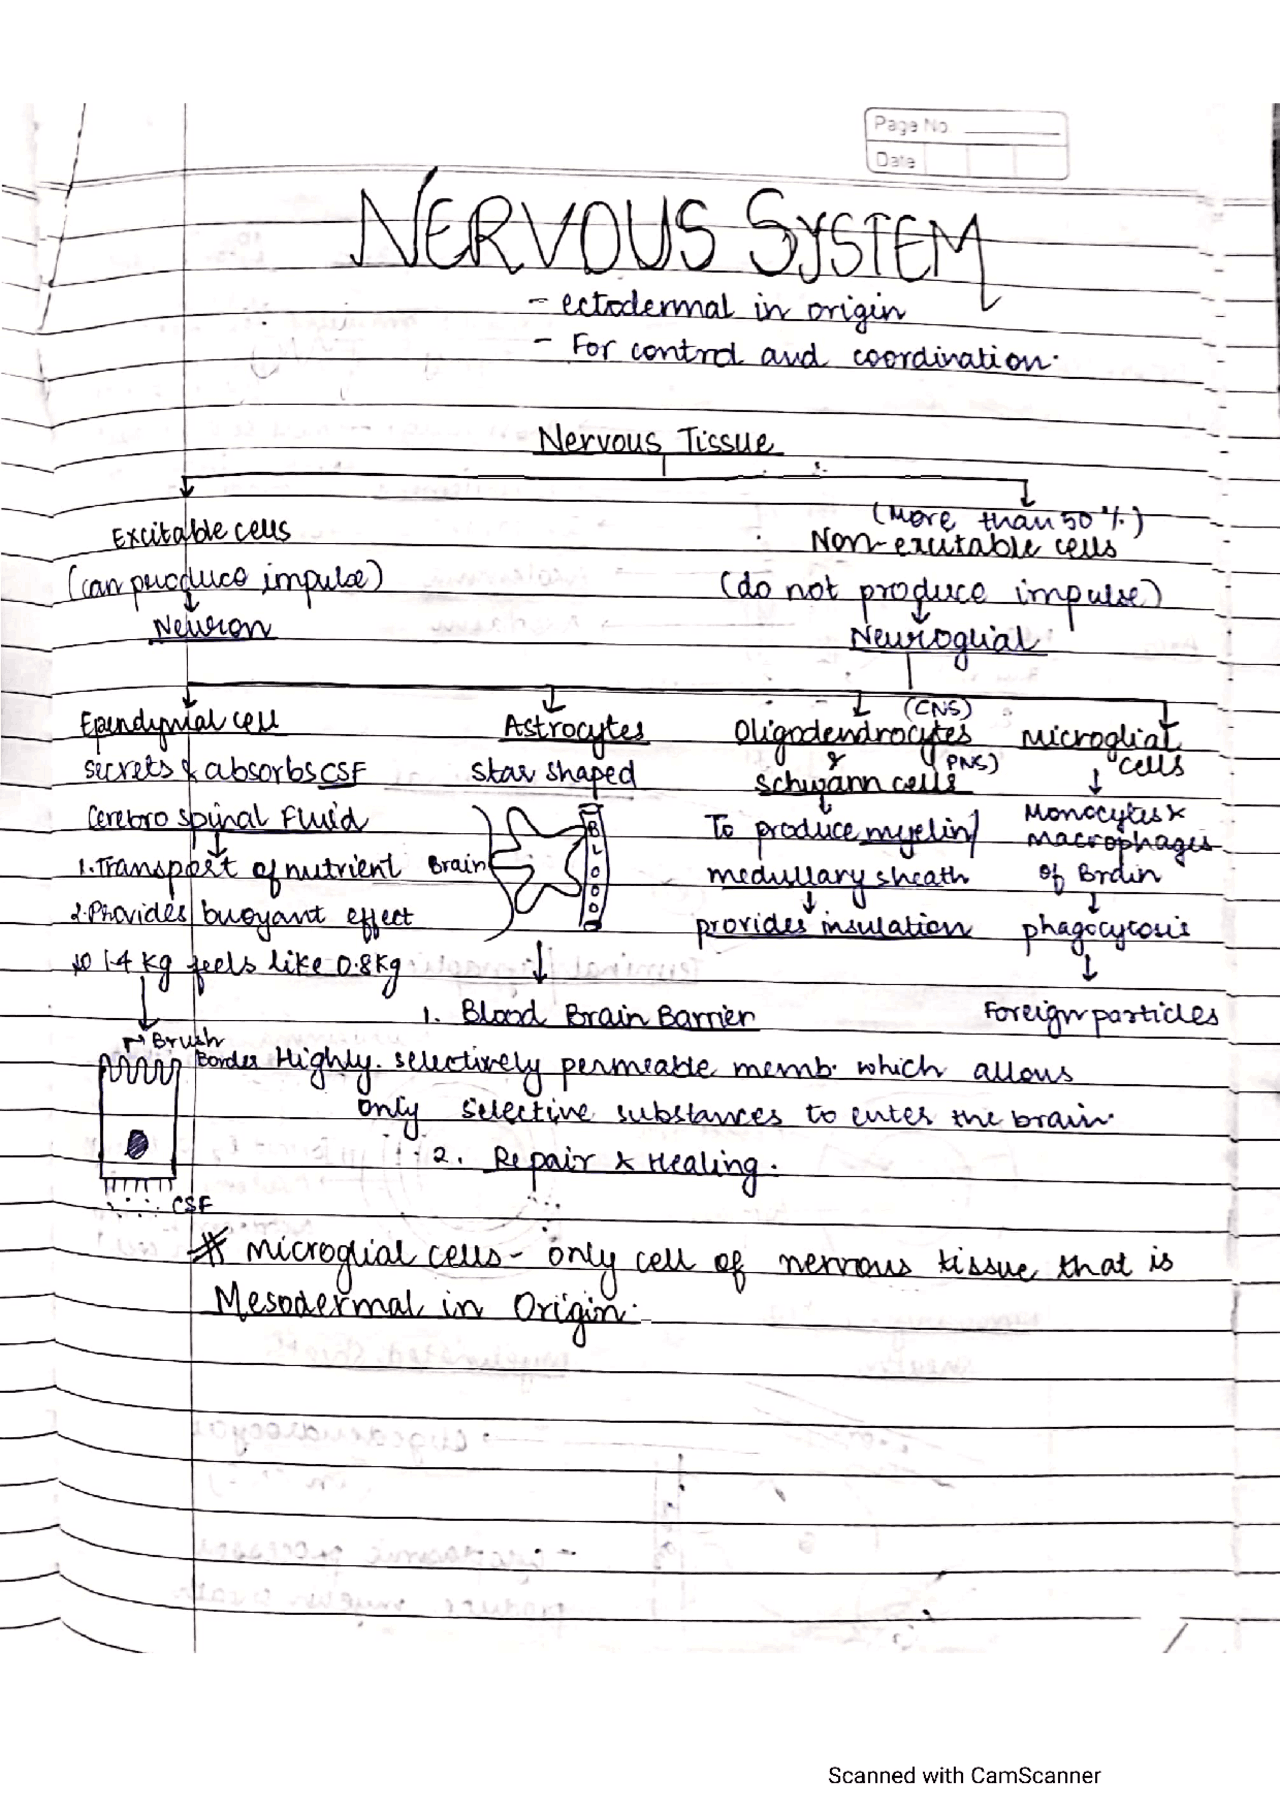 Page No.
Date
NERVOUS SYSTEM
- ectodermal in origin
- For control and coordination.
Nervous Tissue
Excitable cells
(can produce impulse)
Neuron
(More than 50%)
Non-excitable cells
(do not produce impulse)
Neuroglial
Ependymial cell
secrets & absorbs CSF
Cerebro spinal Fluid
1. Transport of nutrient
2. Provides buoyant effect
so 1.4 kg feels like 0.8kg
Brush
Border
CSF
Astrocytes
star shaped
Brain
BLOOD
1. Blood Brain Barrier
Highly. selectively permeable memb. which allows
only selective substances to enter the brain.
2. Repair & Healing.
(CNS)
Oligodendrocytes
& PNS)
Schwann cells
To produce myelin/
medullary sheath
provides insulation
Microglial
cells
Monocytes &
macrophages
of Brain
phagocytosis
Foreign particles
# microglial cells - only cell of nervous tissue that is
Mesodermal in Origin.
Scanned with CamScanner